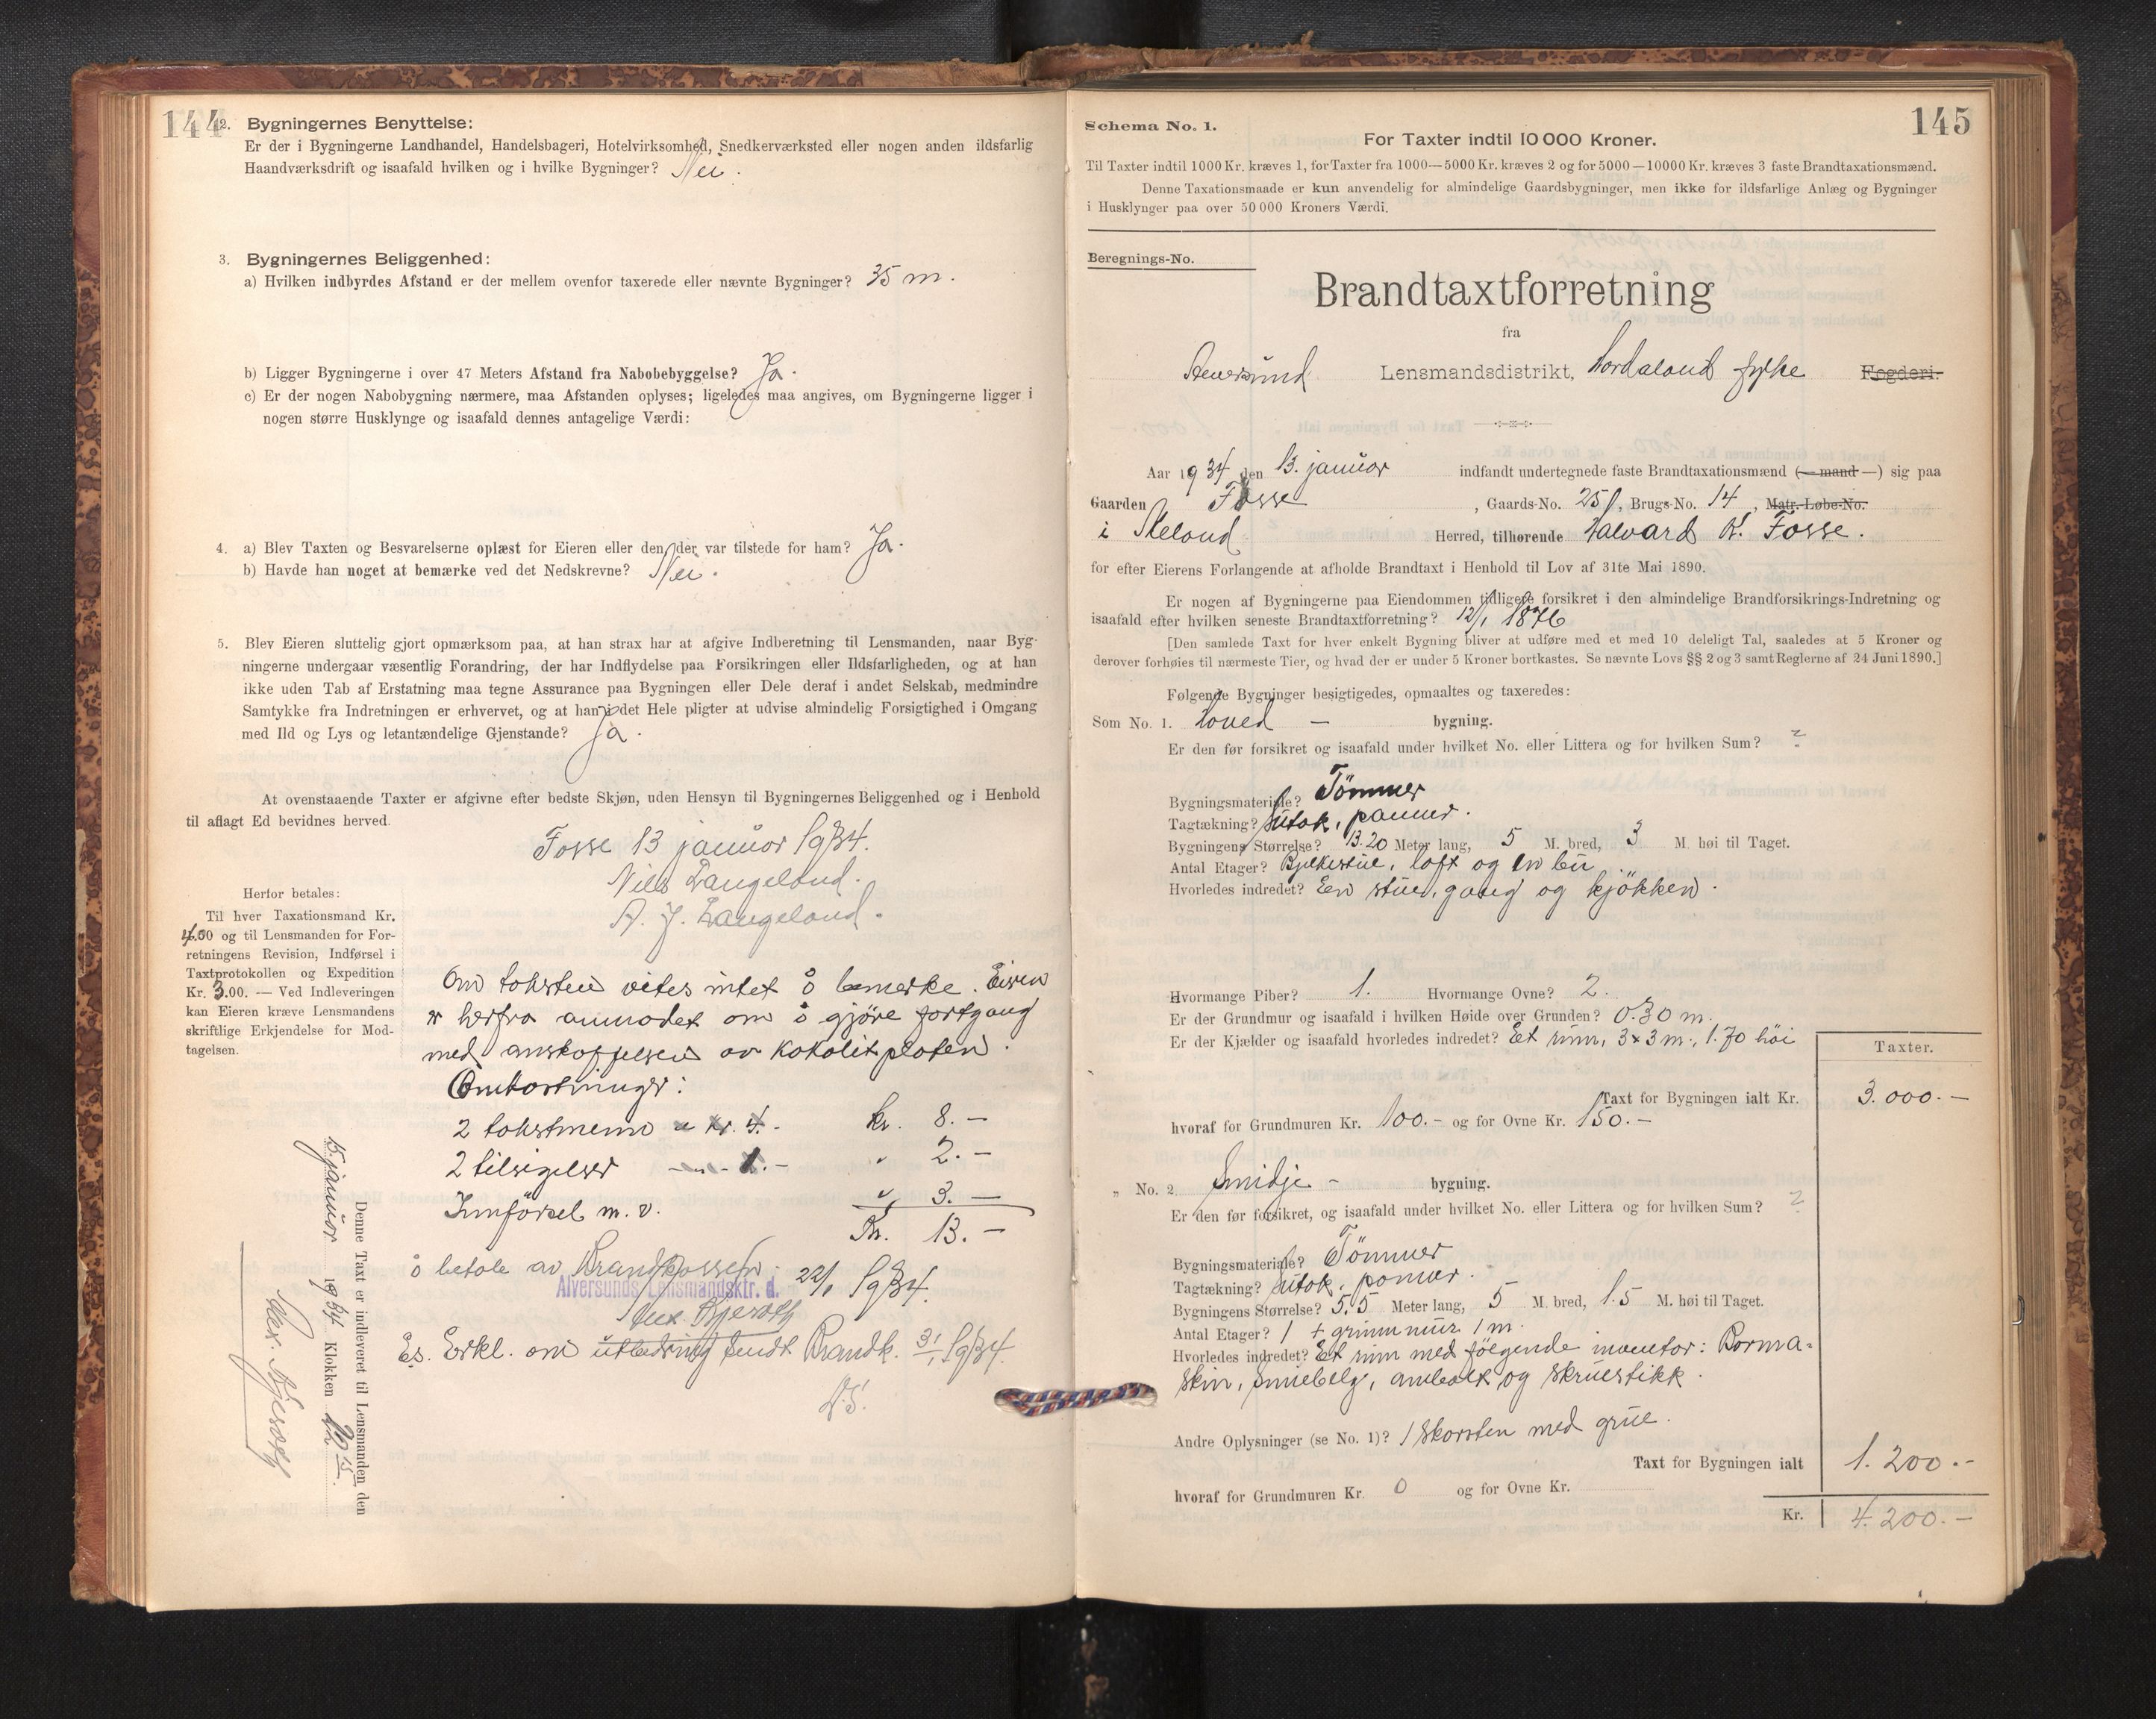 144
2. Bygningernes Benyttelse:
Er der i Bygningerne Landhandel, Handelsbageri, Hotelvirksomhed, Snedkerværksted eller nogen anden ildsfarlig
Haandværksdrift og isaafald hvilken og i hvilke Bygninger? Nei.
3. Bygningernes Beliggenhed:
a) Hvilken indbyrdes Afstand er der mellem ovenfor taxerede eller nævnte Bygninger? 35 m.
b) Ligger Bygningerne i over 47 Meters Afstand fra Nabobebyggelse? Ja.
c) Er der nogen Nabobygning nærmere, maa Afstanden oplyses; ligeledes maa angives, om Bygningerne ligger i
nogen større Husklynge og isaafald dennes antagelige Værdi:
4. a) Blev Taxten og Besvarelserne oplæst for Eieren eller den, der var tilstede for ham? Ja.
b) Havde han noget at bemærke ved det Nedskrevne? Nei.
5. Blev Eieren sluttelig gjort opmærksom paa, at han strax har at afgive Indberetning til Lensmanden, naar Byg-
ningerne undergaar væsentlig Forandring, der har Indflydelse paa Forsikringen eller Ildsfarligheden, og at han
ikke uden Tab af Erstatning maa tegne Assurance paa Bygningen eller Dele deraf i andet Selskab, medmindre
Samtykke fra Indretningen er erhvervet, og at han i det Hele pligter at udvise almindelig Forsigtighed i Omgang
med Ild og Lys og letantændelige Gjenstande? Ja.
At ovenstaaende Taxter er afgivne efter bedste Skjøn, uden Hensyn til Bygningernes Beliggenhed og i Henhold
til aflagt Ed bevidnes herved.
Fosse 13 januar 1934.
Nils Langeland.
A. J. Langeland.
Herfor betales:
Til hver Taxationsmand Kr.
4.00 og til Lensmanden for For-
retningens Revision, Indførsel i
Taxtprotokollen og Expedition
Kr. 3.00. — Ved Indleveringen
kan Eieren kræve Lensmandens
skriftlige Erkjendelse for Mod-
tagelsen.
Om taksten vites intet å bemerke. Eieren
er herfra anmodet om å gjöre fortgang
med anskaffelsen av kokolitplaten.
Omkostninger:
2 takstmenn a kr. 4.- kr. 8.—
2 tilsigelser —"— 1.— " 2.—
Innförsel m. v. " 3.—
Kr. 13.—
å betale av Brandkassen. 22/1 1934.
Alversunds Lensmandsktr. d.
Es. Erkl. om utbedring sendt Brandk. 31/1 1934.
Denne Taxt er indleveret til Lensmanden, den
15 januar 1934 Klokken 12 15.
Schema No. 1.
145
For Taxter indtil 10 000 Kroner.
Til Taxter indtil 1000 Kr. kræves 1, for Taxter fra 1000—5000 Kr. kræves 2 og for 5000—10000 Kr. kræves 3 faste Brandtaxationsmænd.
Denne Taxationsmaade er kun anvendelig for almindelige Gaardsbygninger, men ikke for ildsfarlige Anlæg og Bygninger
i Husklynger paa over 50 000 Kroners Værdi.
Beregnings-No.
Brandtaxtforretning
fra
Alversund Lensmandsdistrikt, Hordaland fylke Fogderi.
Aar 1934 den 13. januar indfandt undertegnede faste Brandtaxationsmænd (— mand —) sig paa
Gaarden Fosse, Gaards-No. 251, Brugs-No. 14, Matr.-Løbe-No.
i Meland Herred, tilhørende Halvard K. Fosse.
for efter Eierens Forlangende at afholde Brandtaxt i Henhold til Lov af 31te Mai 1890.
Er nogen af Bygningerne paa Eiendommen tidligere forsikret i den almindelige Brandforsikrings-Indretning og
isaafald efter hvilken seneste Brandtaxtforretning? 12/1 1876
[Den samlede Taxt for hver enkelt Bygning bliver at udføre med et med 10 deleligt Tal, saaledes at 5 Kroner og
derover forhøies til nærmeste Tier, og hvad der er under 5 Kroner bortkastes. Se nævnte Lovs §§ 2 og 3 samt Reglerne af 24 Juni 1890.]
Følgende Bygninger besigtigedes, opmaaltes og taxeredes:
Som No. 1. Hoved — bygning.
Er den før forsikret og isaafald under hvilket No. eller Littera og for hvilken Sum? ?
Bygningsmateriale? Tömmer
Tagtækning? Sutak, panner.
Bygningens Størrelse? 13.20 Meter lang, 5 M. bred, 3 M. høi til Taget.
Antal Etager? Bjelkestue, loft og en bu
Hvorledes indredet? Een stue, gang og kjökken.
Hvormange Piber? 1. Hvormange Ovne? 2.
Er der Grundmur og isaafald i hvilken Høide over Grunden? 0.30 m.
Er der Kjælder og isaafald hvorledes indredet? Et rum, 3 x 3 m., 1.70 höi
Taxter.
Taxt for Bygningen ialt Kr. 3.000.—
hvoraf for Grundmuren Kr. 100.- og for Ovne Kr. 150.—
" No. 2 Smidje - bygning.
Er den før forsikret, og isaafald under hvilket No. eller Littera og for hvilken Sum? ?
Bygningsmateriale? Tömmer
Tagtækning? Sutak, panner.
Bygningens Størrelse? 5.5 Meter lang, 5 M. bred, 1.5 M. høi til Taget.
Antal Etager? 1 + grunnmur 1 m.
Hvorledes indredet? Et rum med fölgende inventar: Borma-
skin, smiebelg, ambolt og skruestikk.
Andre Oplysninger (se No. 1)? 1 skorsten med grue.
Taxt for Bygningen ialt 1.200.-
hvoraf for Grundmuren Kr. 0 og for Ovne Kr.
Kr. 4.200.—